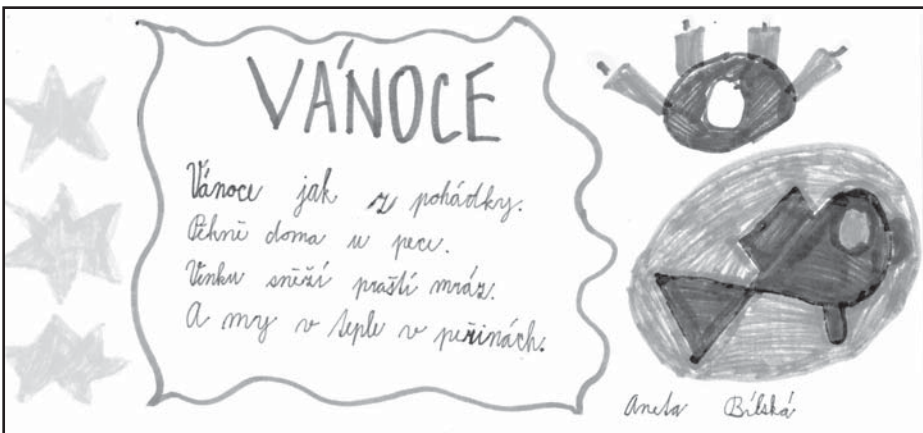 VÁNOCE
Vánoce jak z pohádky.
Pěkně doma u pece.
Venku sněží praští mráz.
A my v teple v peřinách.
Aneta Bílská